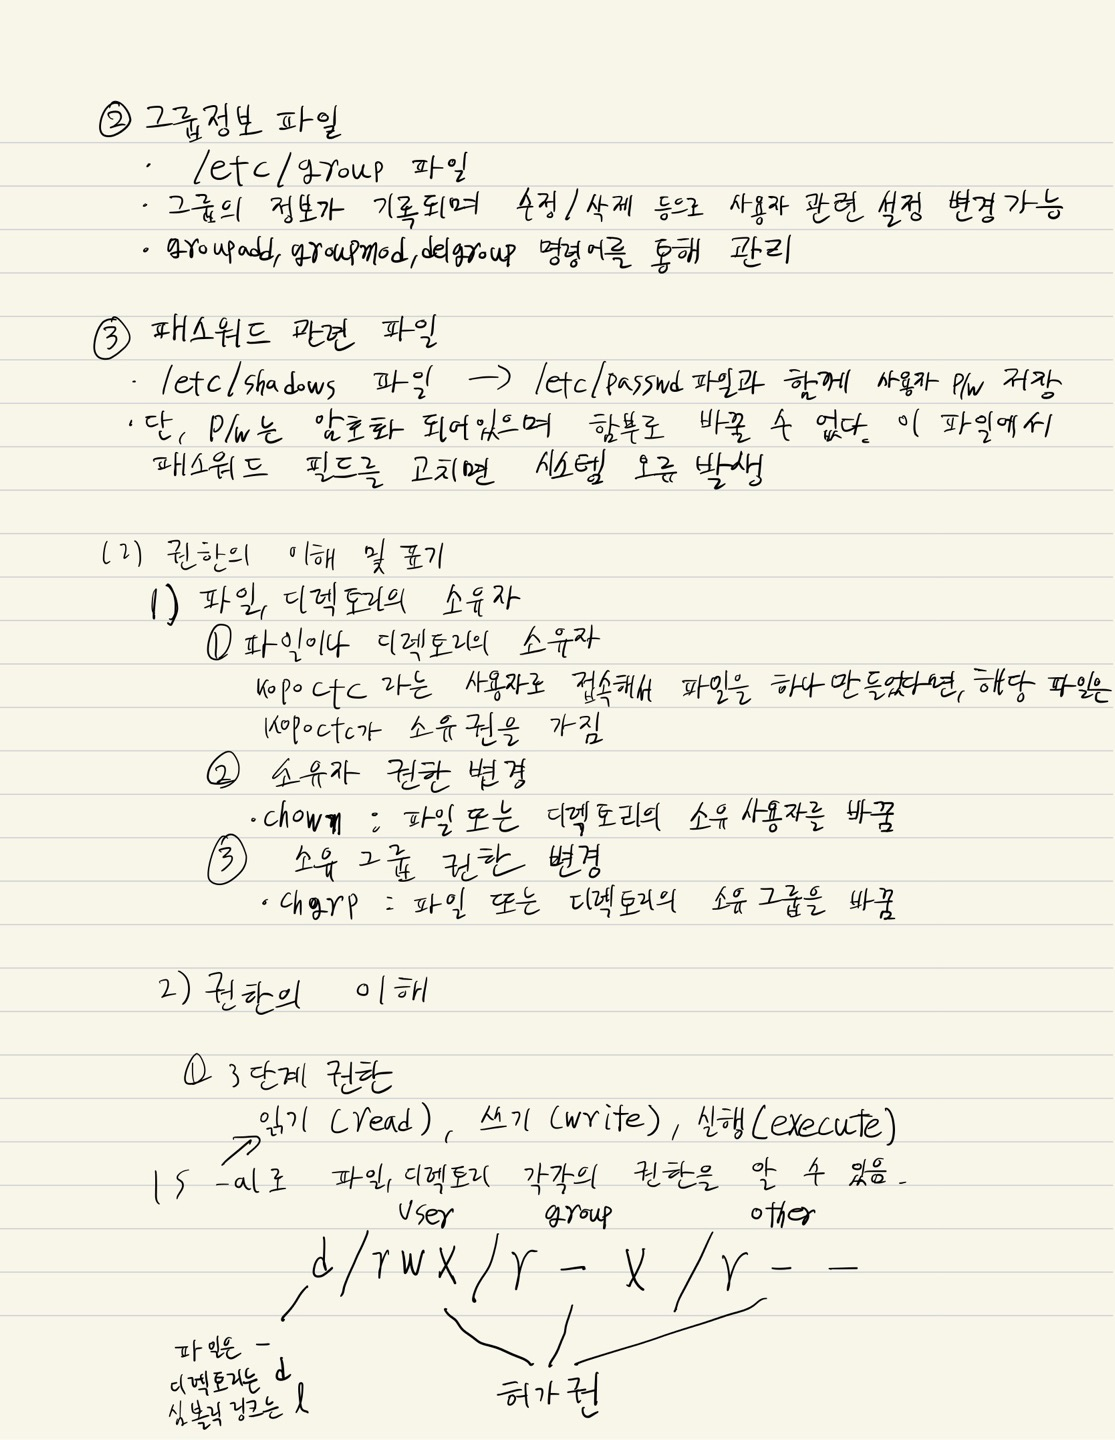 ② 그룹정보 파일
· /etc/group 파일
· 그룹의 정보가 기록되며 수정/삭제 등으로 사용자 관련 설정 변경 가능
· groupadd, groupmod, delgroup 명령어를 통해 관리
③ 패스워드 관련 파일
· /etc/shadows 파일 → /etc/passwd 파일과 함께 사용자 p/w 저장
· 단, p/w는 암호화 되어있으며 함부로 바꿀 수 없다. 이 파일에서
패스워드 필드를 고치면 시스템 오류 발생
(2) 권한의 이해 및 표기
1) 파일, 디렉토리의 소유자
① 파일이나 디렉토리의 소유자
kopoctc 라는 사용자로 접속해서 파일을 하나 만들었다면, 해당 파일은
kopoctc가 소유권을 가짐
② 소유자 권한 변경
· chown : 파일 또는 디렉토리의 소유 사용자를 바꿈
③ 소유 그룹 권한 변경
· chgrp : 파일 또는 디렉토리의 소유 그룹을 바꿈
2) 권한의 이해
① 3단계 권한
읽기 (read), 쓰기 (write), 실행 (execute)
ls -al로 파일, 디렉토리 각각의 권한을 알 수 있음.
user group other
d / r w x / r - x / r - -
파일은 -
디렉토리는 d
심볼릭 링크는 l
허가권